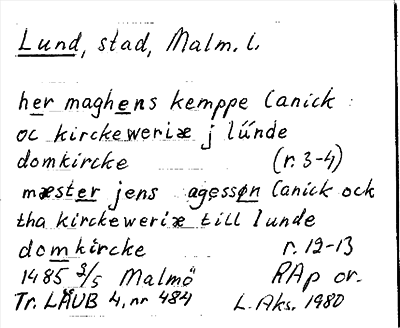 Lund, stad, Malm. l.
her maghens kemppe Canick :
oc kirckeweriæ j lünde
domkircke (r. 3-4)
mæster jens agessøn Canick ock
tha kirckeweriæ till lunde
domkircke r. 12-13
1485 3/5 Malmö RAp or.
Tr. LÄUB 4, nr 484 L. Aks. 1980